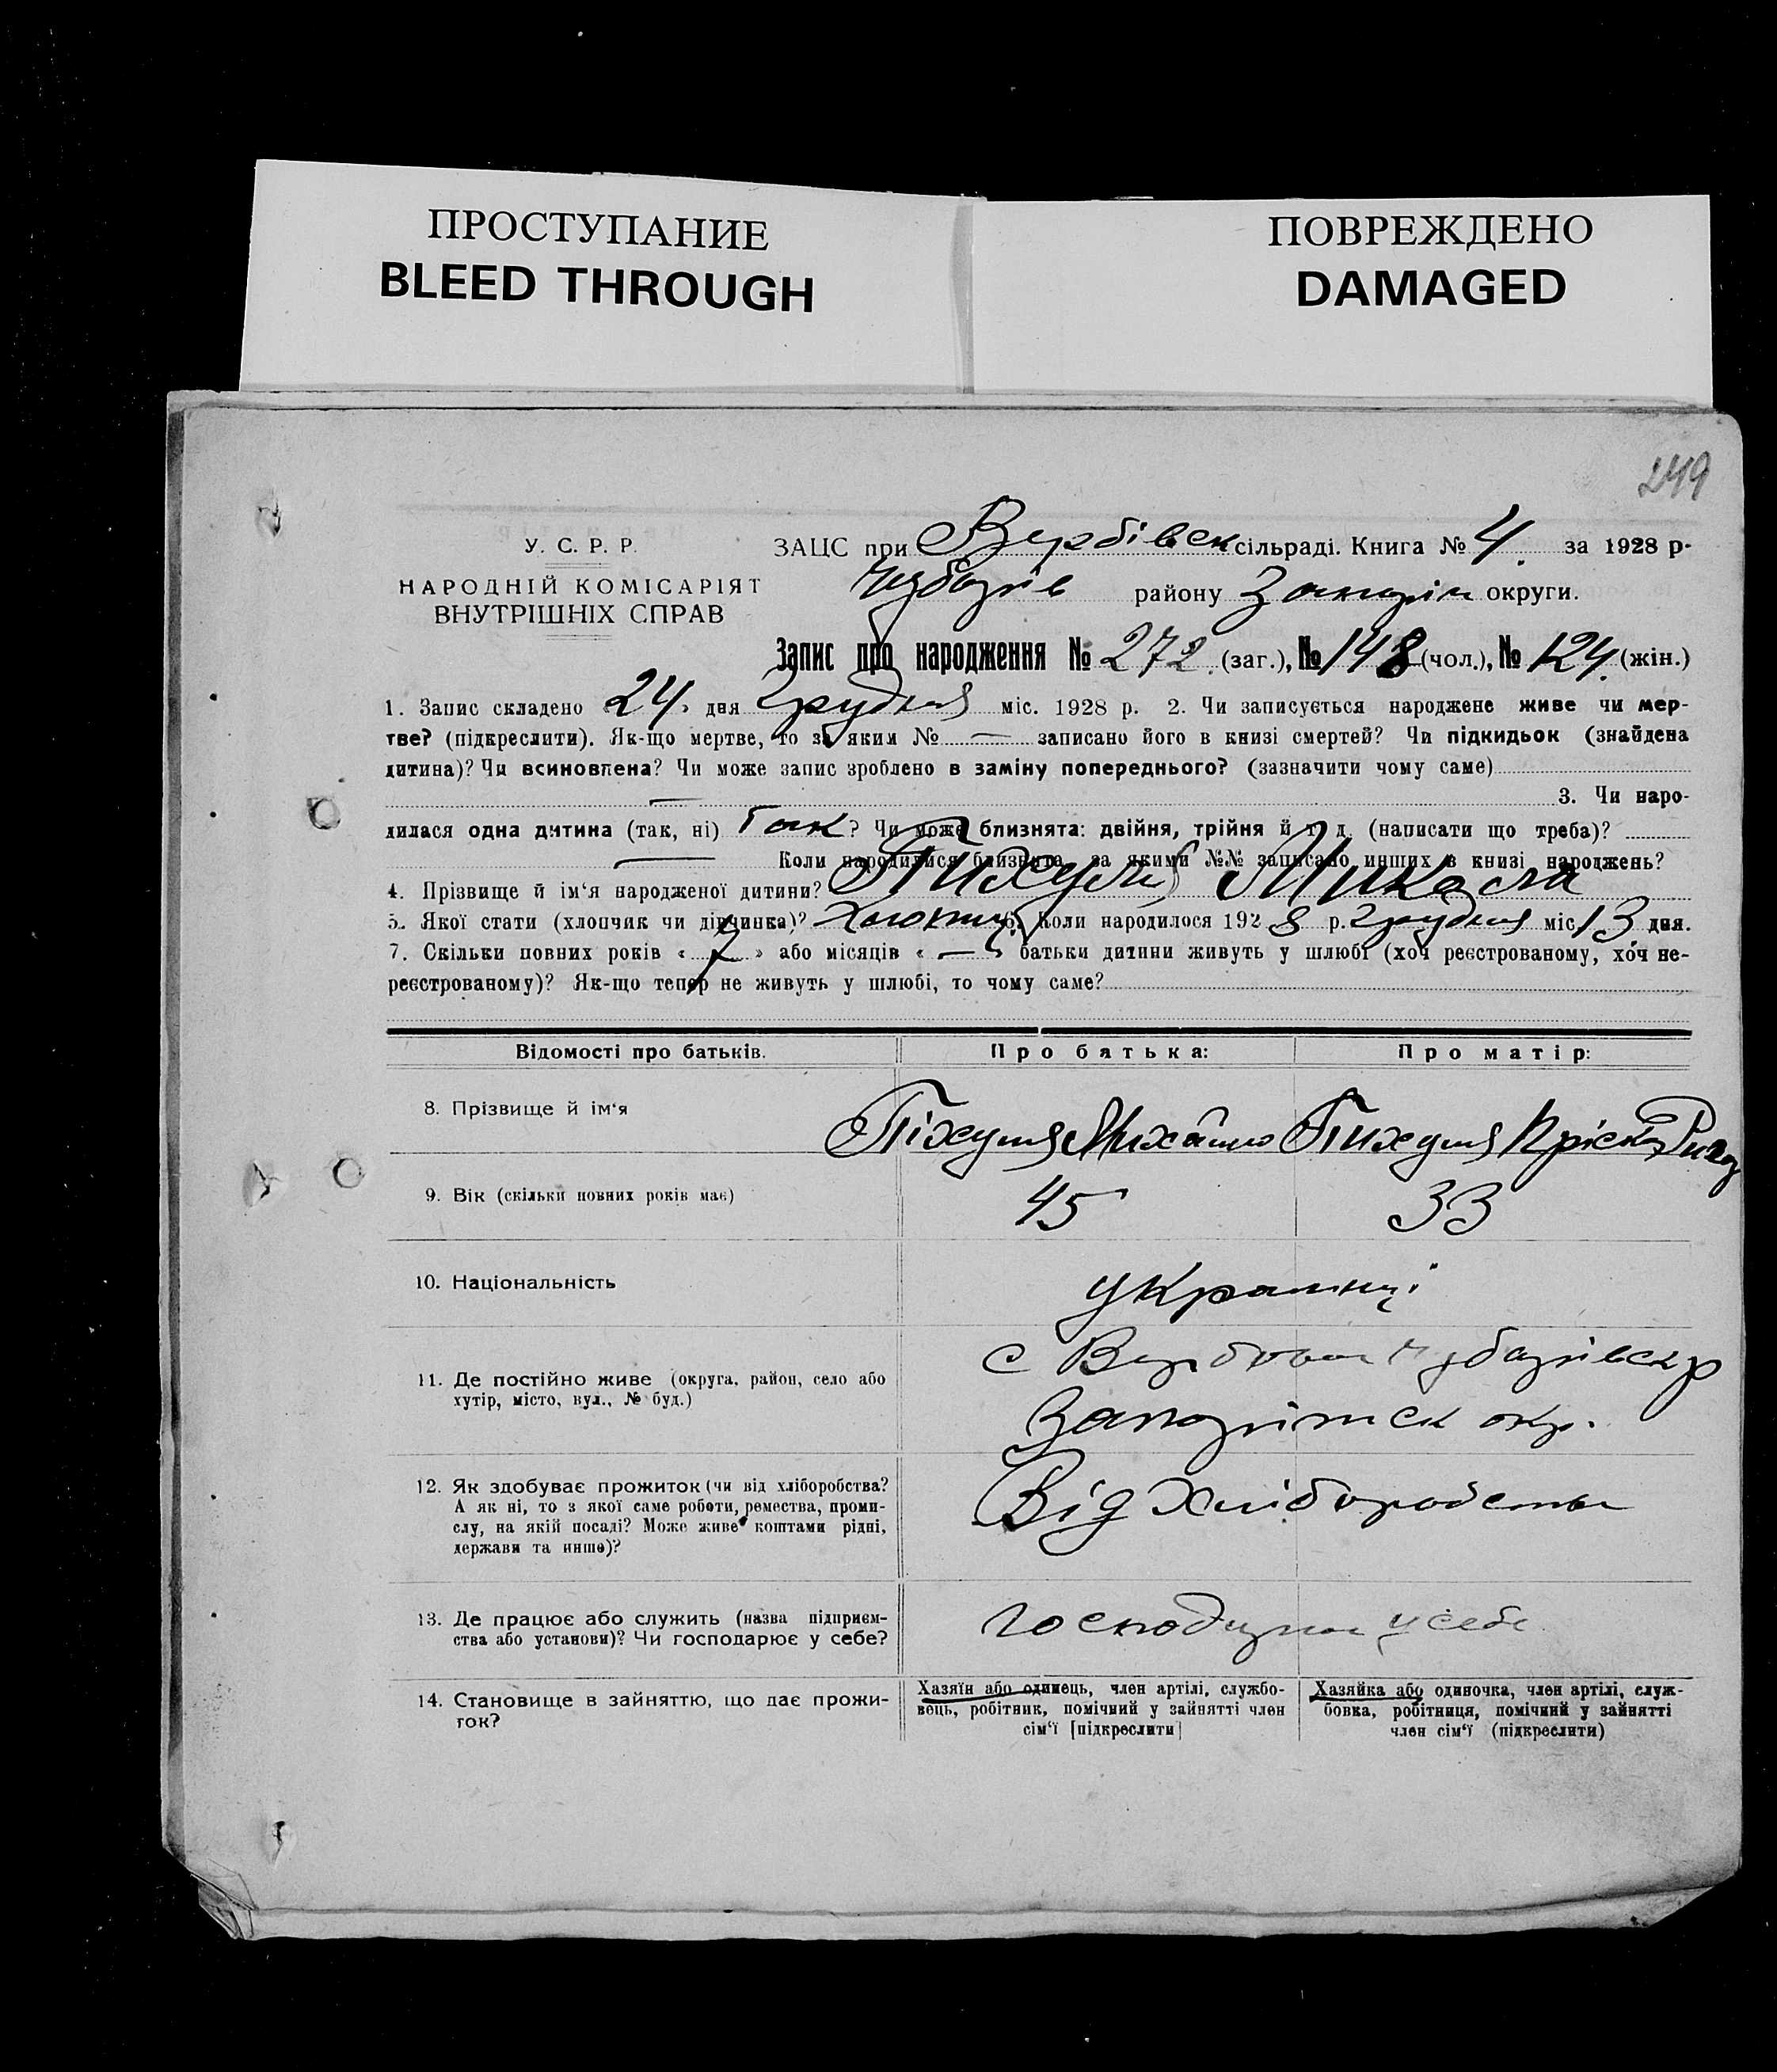 ПРОСТУПАНИЕ
BLEED THROUGH
ПОВРЕЖДЕНО
DAMAGED
249
У. С. Р. Р.
НАРОДНІЙ КОМІСАРІЯТ
ВНУТРІШНІХ СПРАВ
ЗАЦС при Вербівск сільраді. Книга № 4. за 1928 р.
району Запоріж округи.
Запис про народження № 272 (заг.), № 148 (чол.), № 124 (жін.)
1. Запис складено 24 дня Грудня міс. 1928 р. 2. Чи записується народжене живе чи мер-
тве? (підкреслити). Як-що мертве, то за яким № — записано його в книзі смертей? Чи підкидьок (знайдена
дитина)? Чи всиновлена? Чи може запис зроблено в заміну попереднього? (зазначити чому саме)
— 3. Чи наро-
дилася одна дитина (так, ні) Так? Чи може близнята: двійня, трійня й т. д. (написати що треба)?
— Коли народилися близнята, за якими №№ записано инших в книзі народжень?
4. Прізвище й ім'я народженої дитини? Пихуля Микола
5. Якої стати (хлопчик чи дівчинка)? Хлопчик 6. Коли народилося 1928 р. Грудня міс. 13 дня.
7. Скільки повних років « 7 » або місяців « — » батьки дитини живуть у шлюбі (хоч реєстрованому, хоч не-
реєстрованому)? Як-що тепер не живуть у шлюбі, то чому саме?
Відомості про батьків. Про батька: Про матір:
8. Прізвище й ім'я Піхуля Михайло Пихуля Пріська
9. Вік (скільки повних років має) 45 33
10. Національність українці
11. Де постійно живе (округа, район, село або
хутір, місто, вул., № буд.)
с Вербова Чубарівск р
Запоріжск окр.
12. Як здобуває прожиток (чи від хліборобства?
А як ні, то з якої саме роботи, ремества, проми-
слу, на якій посаді? Може живе коштами рідні,
держави та инше)?
Від Хліборобства
13. Де працює або служить (назва підприєм-
ства або установи)? Чи господарює у себе?
у себе
14. Становище в зайняттю, що дає прожи-
ток?
Хазяїн або одинець, член артілі, службо-
вець, робітник, помічний у зайнятті член
сім'ї [підкреслити]
Хазяйка або одиночка, член артілі, служ-
бовка, робітниця, помічний у зайнятті
член сім'ї (підкреслити)